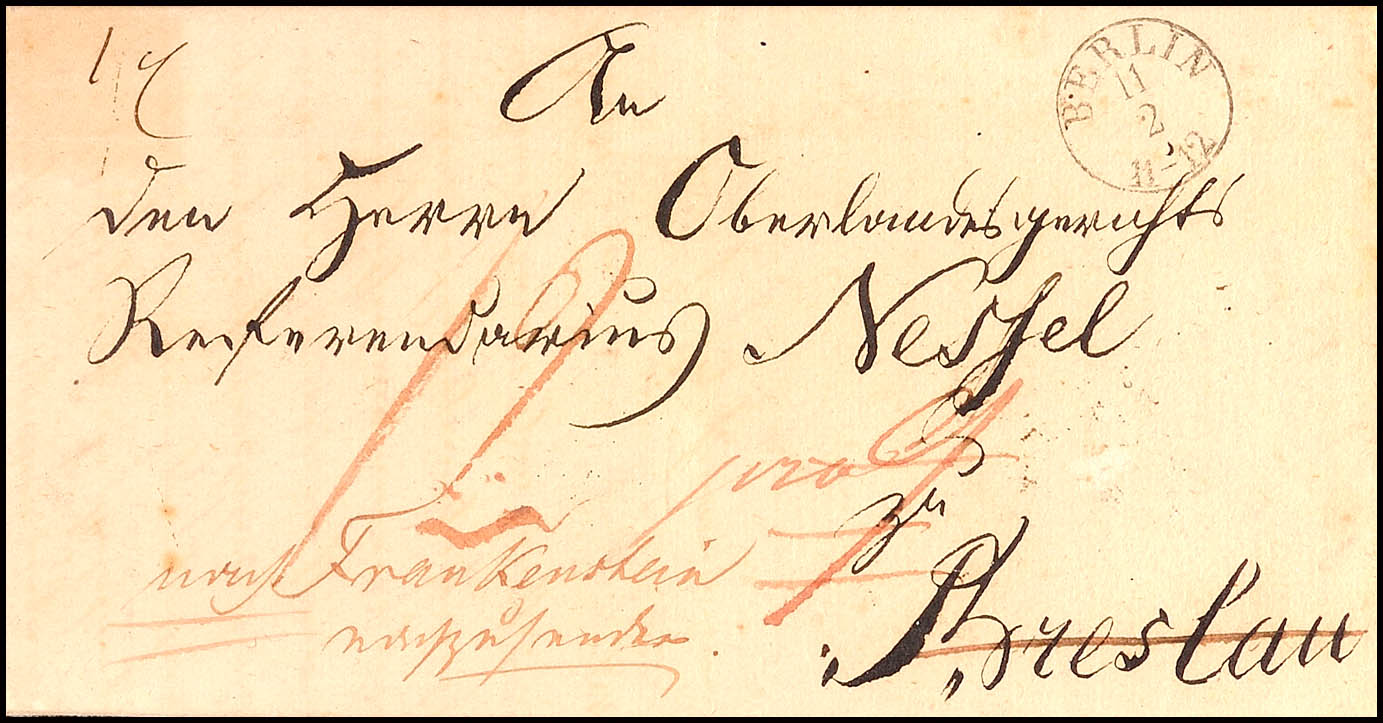 An
BERLIN
11
2
11-12
den Herrn Oberlandesgerichts
Referendarius Nessel
zu
Breslau
nach Frankenstein
nachzusenden.